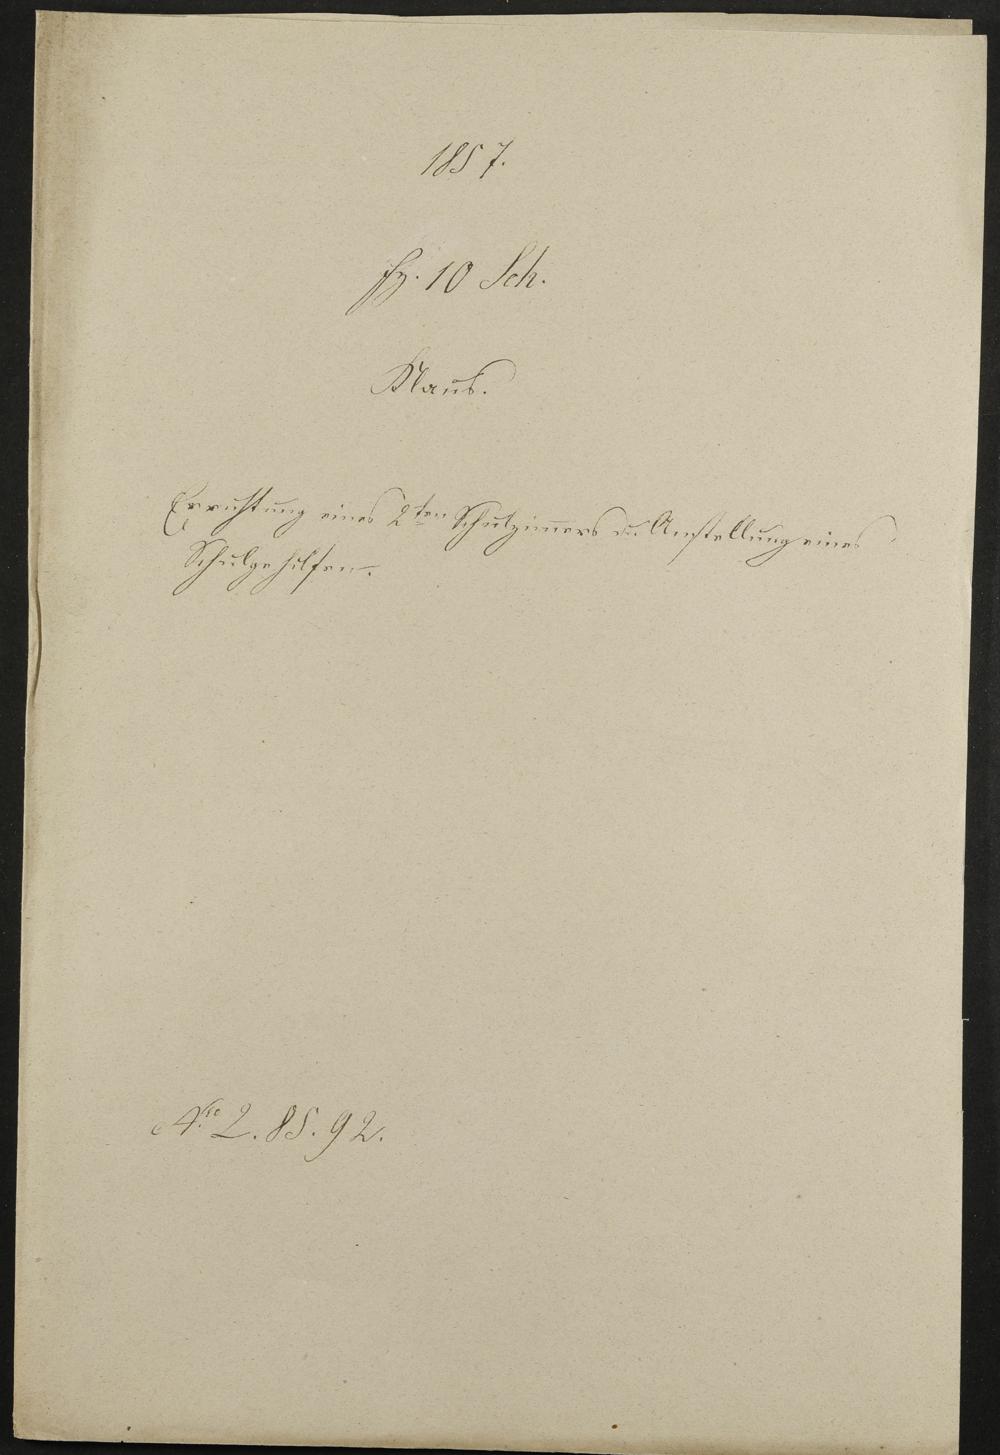 1857.
Fz. 10 Sch.
Klaus.
Errichtung eines 2ten Schulzim̅ers u. Anstellung eines
Schulgehilfen.
Nro 2. 85. 92.